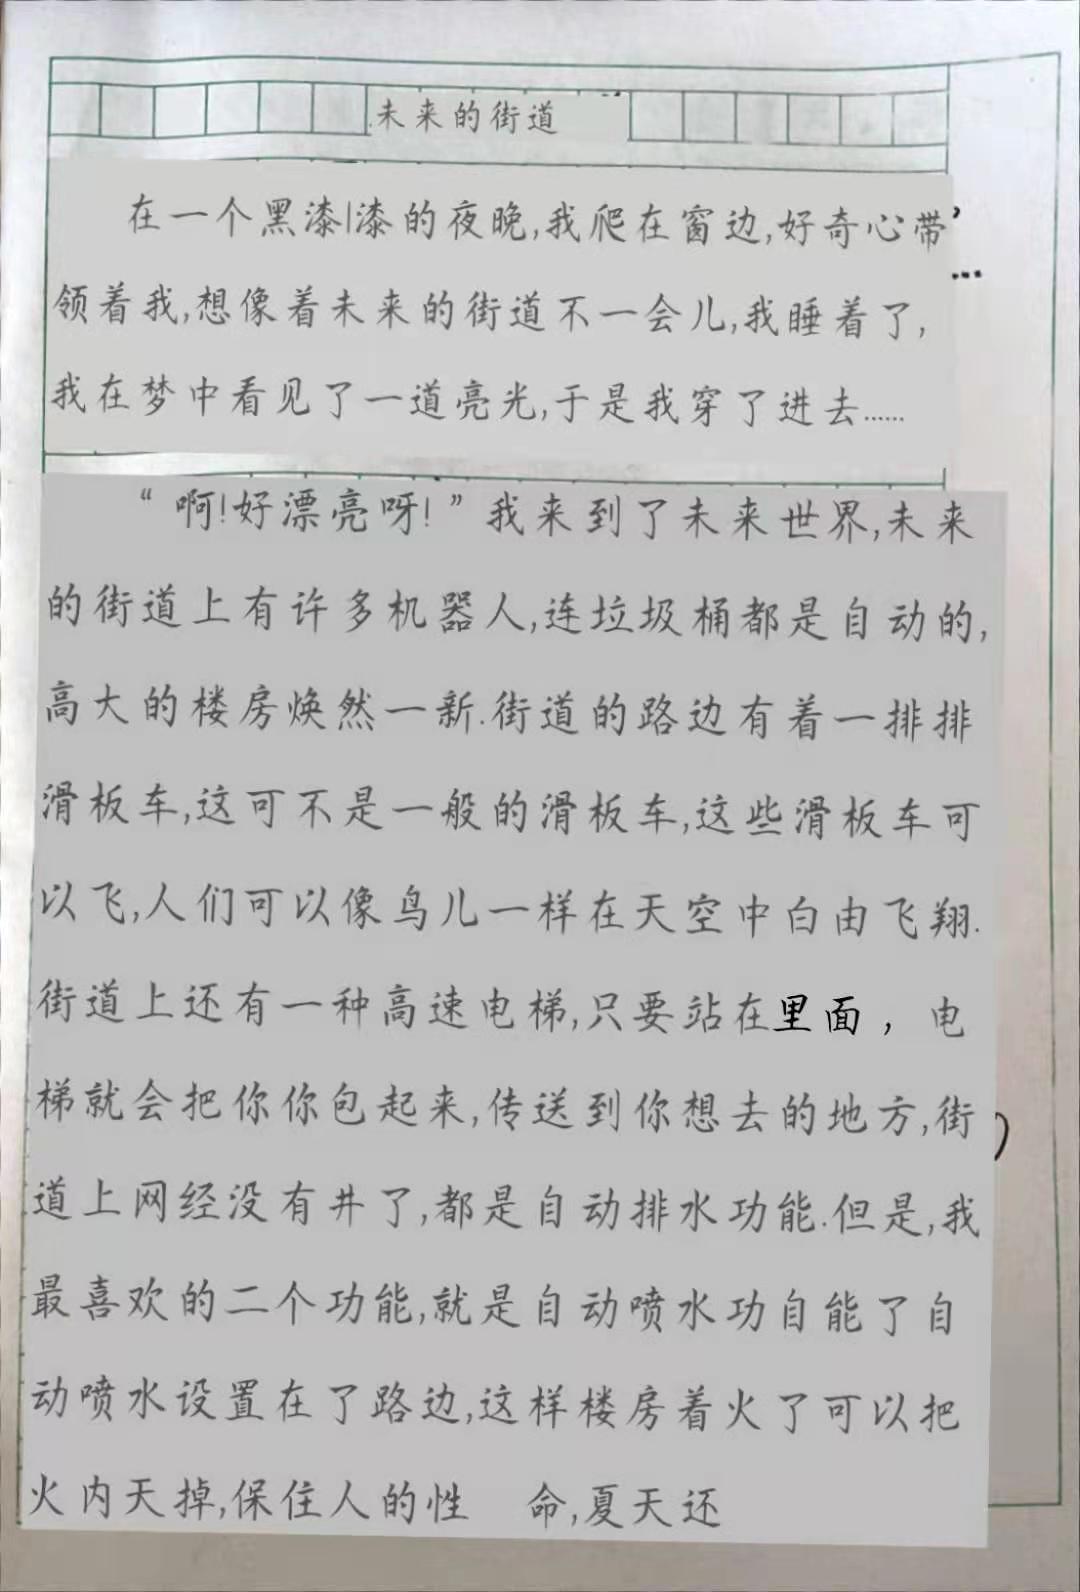 未来的街道
在一个黑漆|漆的夜晚,我爬在窗边,好奇心带
领着我,想像着未来的街道不一会儿,我睡着了,
我在梦中看见了一道亮光,于是我穿了进去……
“啊!好漂亮呀!”我来到了未来世界,未来
的街道上有许多机器人,连垃圾桶都是自动的,
高大的楼房焕然一新.街道的路边有着一排排
滑板车,这可不是一般的滑板车,这些滑板车可
以飞,人们可以像鸟儿一样在天空中白由飞翔.
街道上还有一种高速电梯,只要站在里面，电
梯就会把你你包起来,传送到你想去的地方,街
道上网经没有井了,都是自动排水功能.但是,我
最喜欢的二个功能,就是自动喷水功自能了自
动喷水设置在了路边,这样楼房着火了可以把
火内天掉,保住人的性 命,夏天还